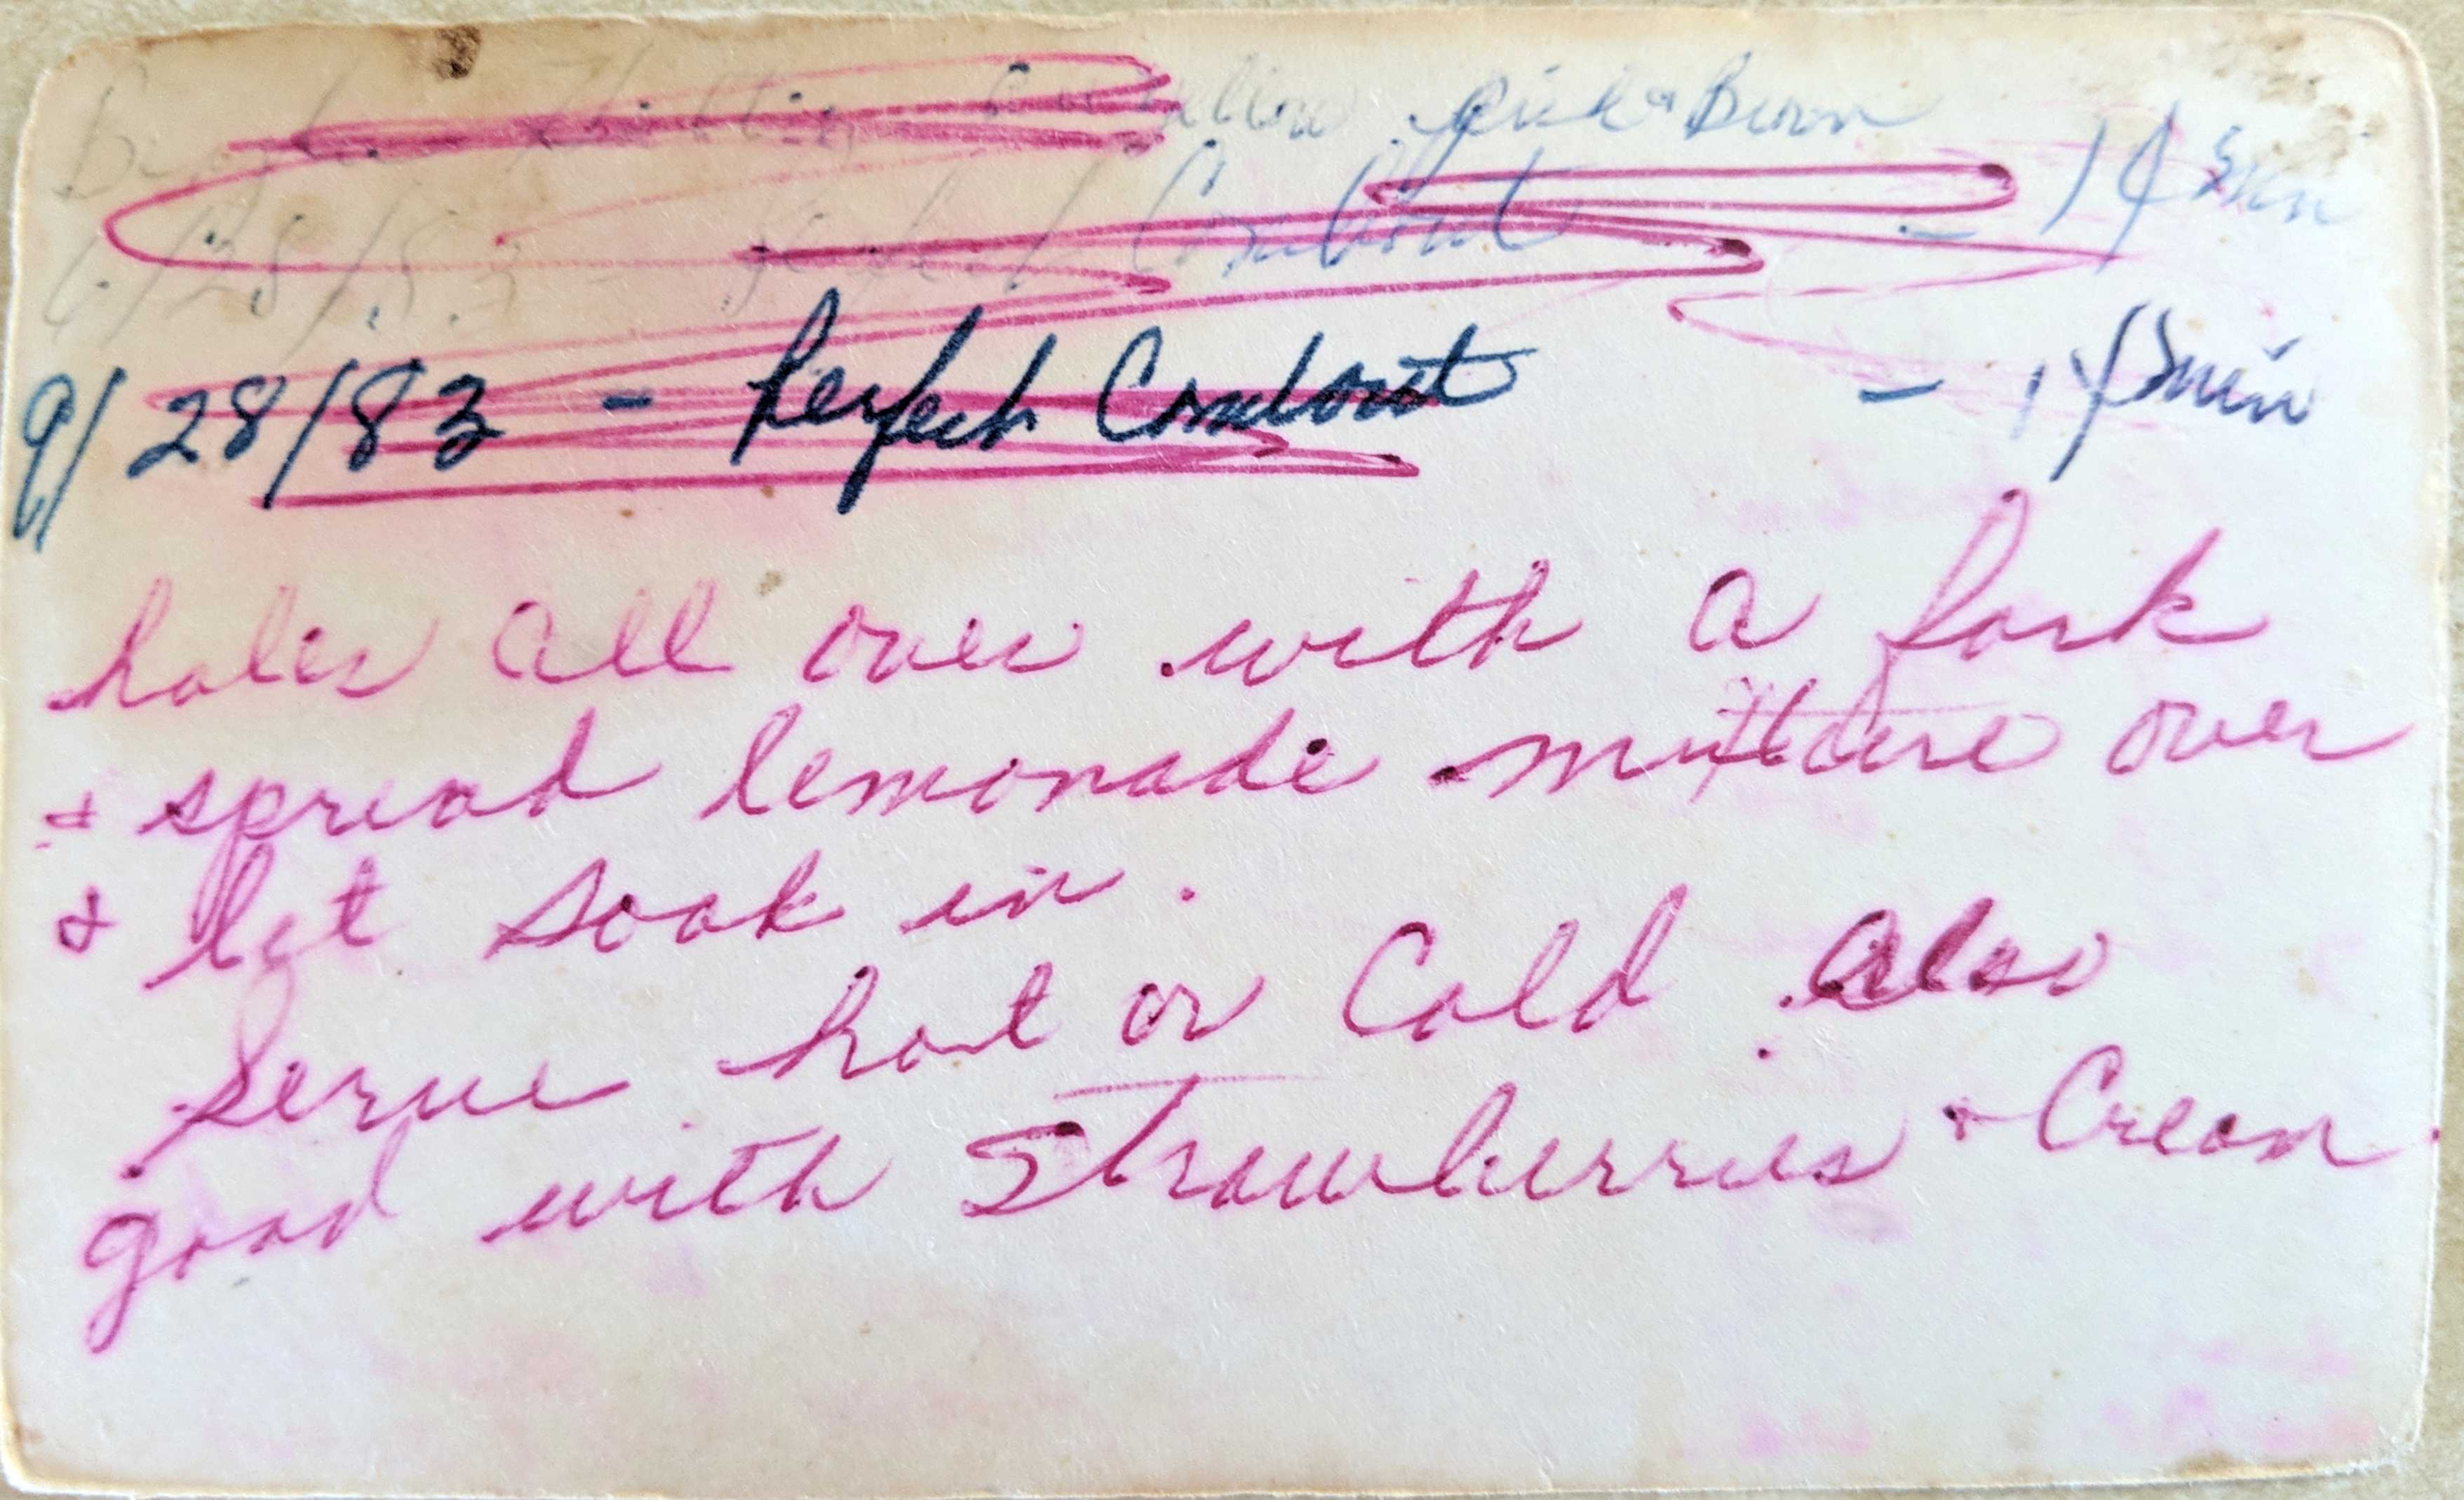 9/28/83 - Perfect Comb out - 14 min
holes all over with a fork
& spread lemonade mixture over
& let soak in.
Serve hot or Cold. also
good with Strawberries & Cream.